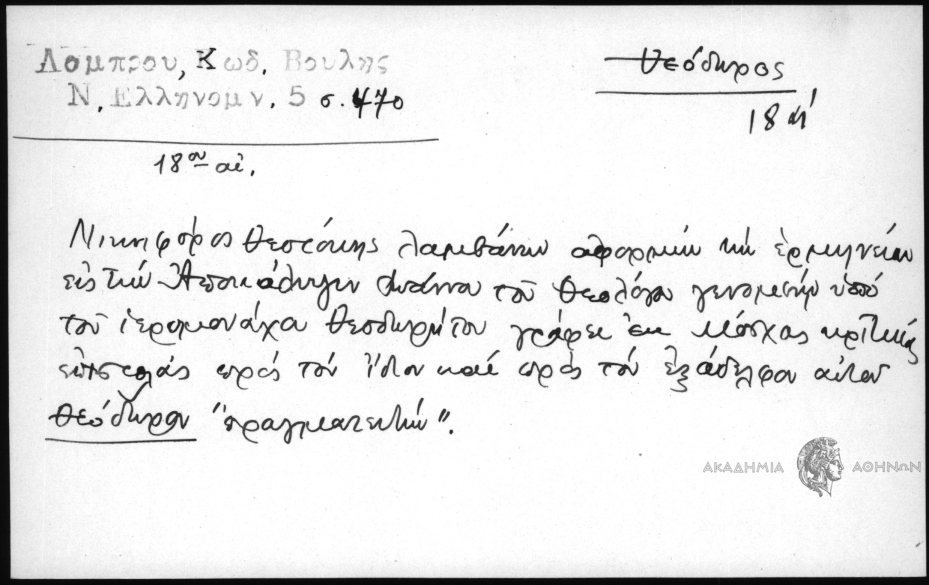 Λαμπρου, Κωδ. Βουλης
Ν. Ελληνομν. 5 σ. 470
Θεόδωρος
18 αἰ
18ου αἰ.
Νικηφόρος Θεοτόκης λαμβάνων ἀφορμήν τήν ἑρμηνείαν
εἰς τήν Ἀποκάλυψιν Ἰωάννου τοῦ Θεολόγου γενομένην ὑπό
τοῦ ἱερομονάχου Θεοδωρήτου γράφει ἐκ Μόσχας κριτικάς
ἐπιστολάς πρός τόν ἴδιον καί πρός τόν ἐξάδελφον αὐτοῦ
Θεόδωρον "πραγματευτήν".
ΑΚΑΔΗΜΙΑ ΑΘΗΝΩΝ